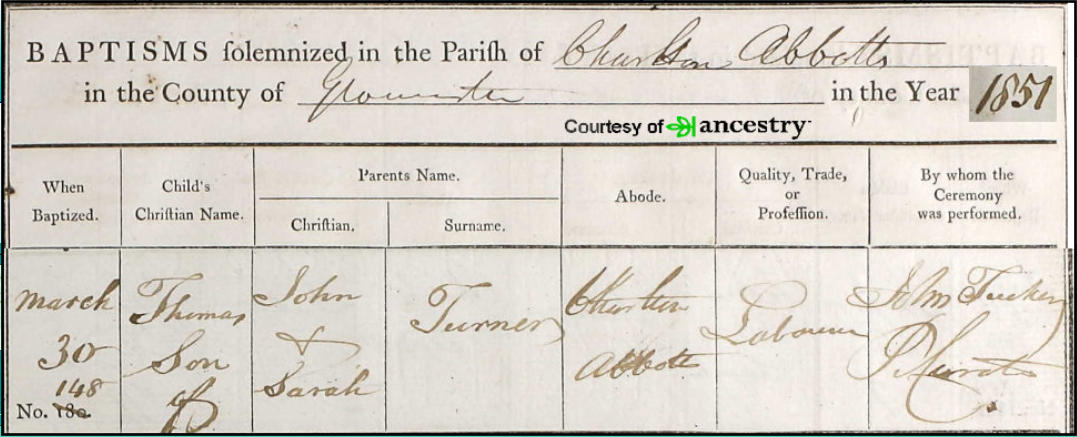 BAPTISMS ſolemnized in the Pariſh of Charlton Abbotts
in the County of Gloucester in the Year 1851
Courtesy of ancestry
When
Baptized.
Child's
Chriſtian Name.
Parents Name.
Chriſtian.
Surname.
Abode.
Quality, Trade,
or
Profeſſion.
By whom the
Ceremony
was performed.
March
30
148
No. 180.
Thomas
Son
of
John
&
Sarah
Turner
Charlton
Abbotts
Labourer
John Tucker
P Curate